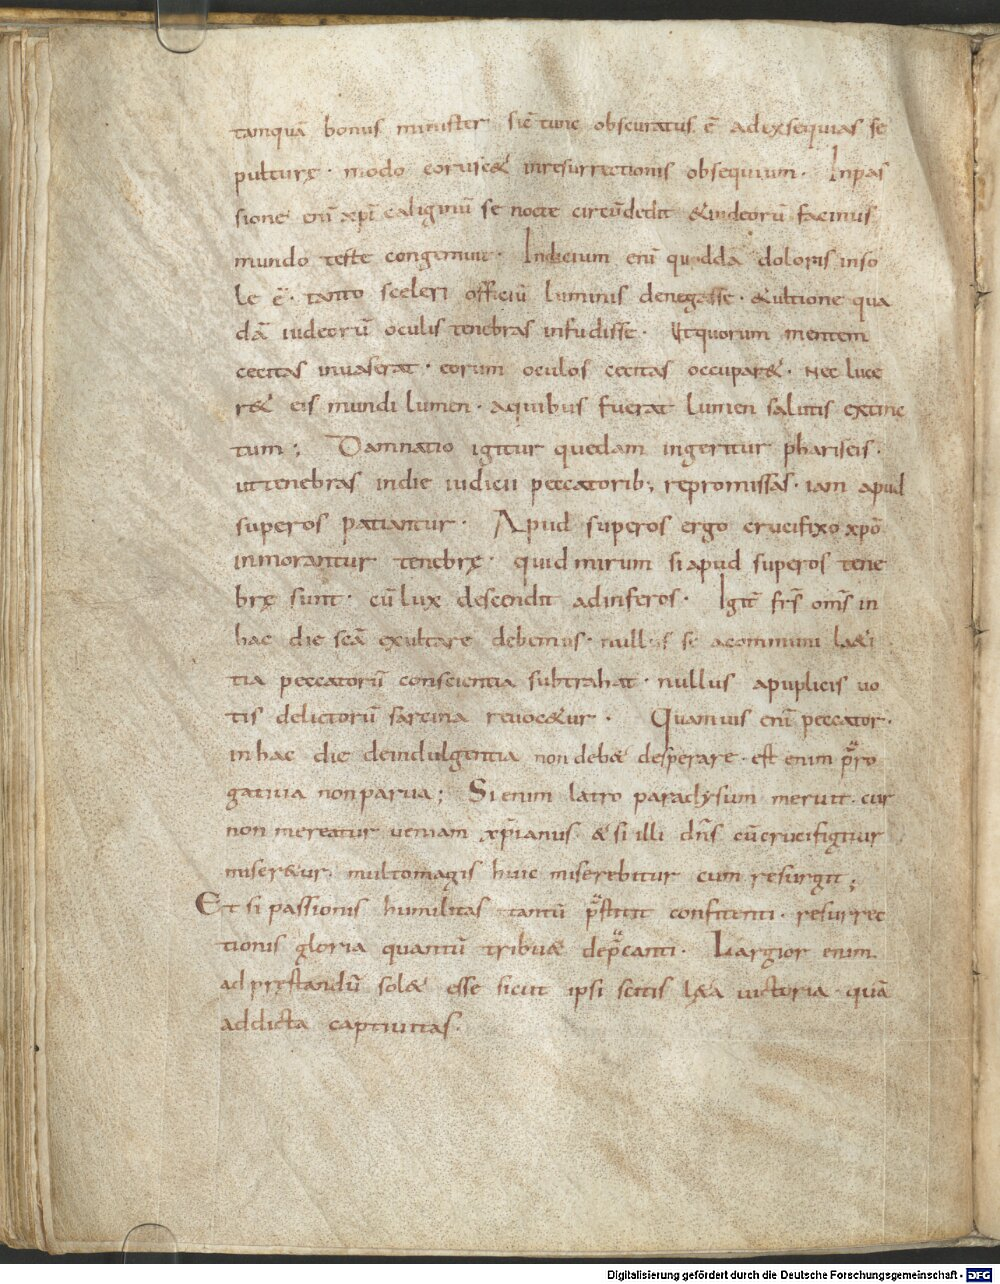 tamquā bonus minister sic̄ tunc obscuratus ē adexsequias se
pulturę · modo corusc& inresurrectionis obsequium · Inpas
sione enī xp̄i caliginū se nocte circūdedit &iudeorū facinus
mundo teste congemuit · Indicium enī quoddā doloris inso
le ē · tanto sceleri officiū luminis denegasse · &ultione qua
dā iudeorū oculis tenebras infudisse · Utquorum mentem
cecitas inuaserat · eorum oculos cecitas occupar& · Nec luce
r& eis mundi lumen · aquibus fuerat lumen salutis extinc
tum ; Damnatio igitur quedam ingeritur phariseis ·
uttenebras indie iudicii peccatorib; repromissas · iam apud
superos patiantur · Apud superos ergo crucifixo xp̄o
inmorantur tenebrę · quid mirum siapud superos tene
brę sunt · cū lux descendit adinferos · Igit̄ fr̄s om̄s in
hac die sc̄a exultare debemus · nullus se acommuni l&i
tia peccatorū conscientia subtrahat · nullus apuplicis uo
tis delictorū sarcina reuoc&ur · Quamuis enī peccator ·
inhac die deindulgentia non deb& desperare · est enim p̄ro
gatiua nonparua ; Si enim latro paradysum meruit · cur
non mereatur ueniam xp̄ianus · & si illi dn̄s cū crucifigitur
miser&ur · multomagis huic miserebitur cum resurgit ;
Et si passionis humilitas tantū p̄stitit confitenti · resurrec
tionis gloria quantū tribu& dep̄canti · Largior enim
ad pręstandū sol& esse sicut ipsi scitis l&a uictoria · quā
addicta captiuitas ·
Digitalisierung gefördert durch die Deutsche Forschungsgemeinschaft - DFG